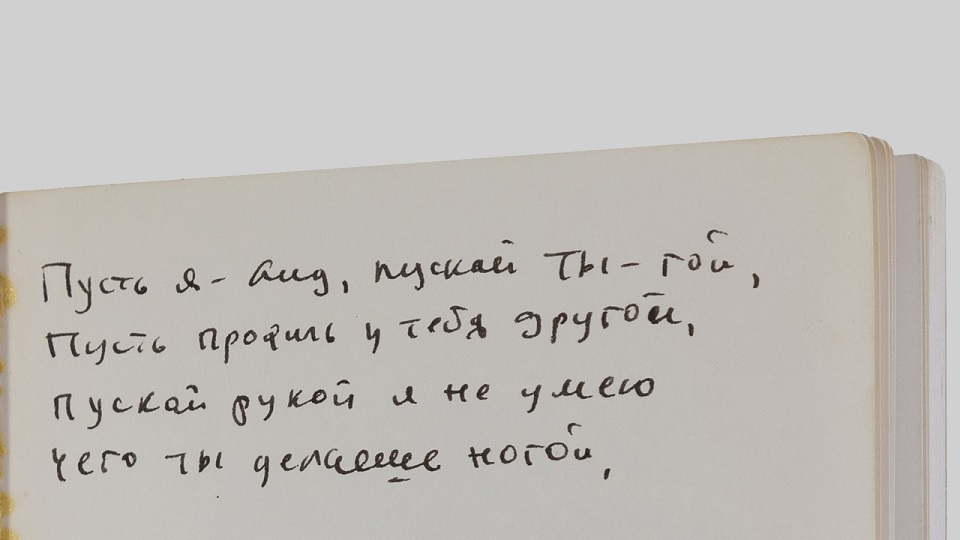 Пусть я - аид, пускай ты - гой,
Пусть профиль у тебя другой,
пускай рукой я не умею
чего ты делаеше ногой,